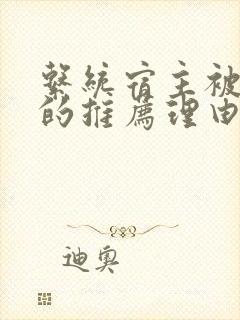 繫統宿主被
的推薦理由
迪奧